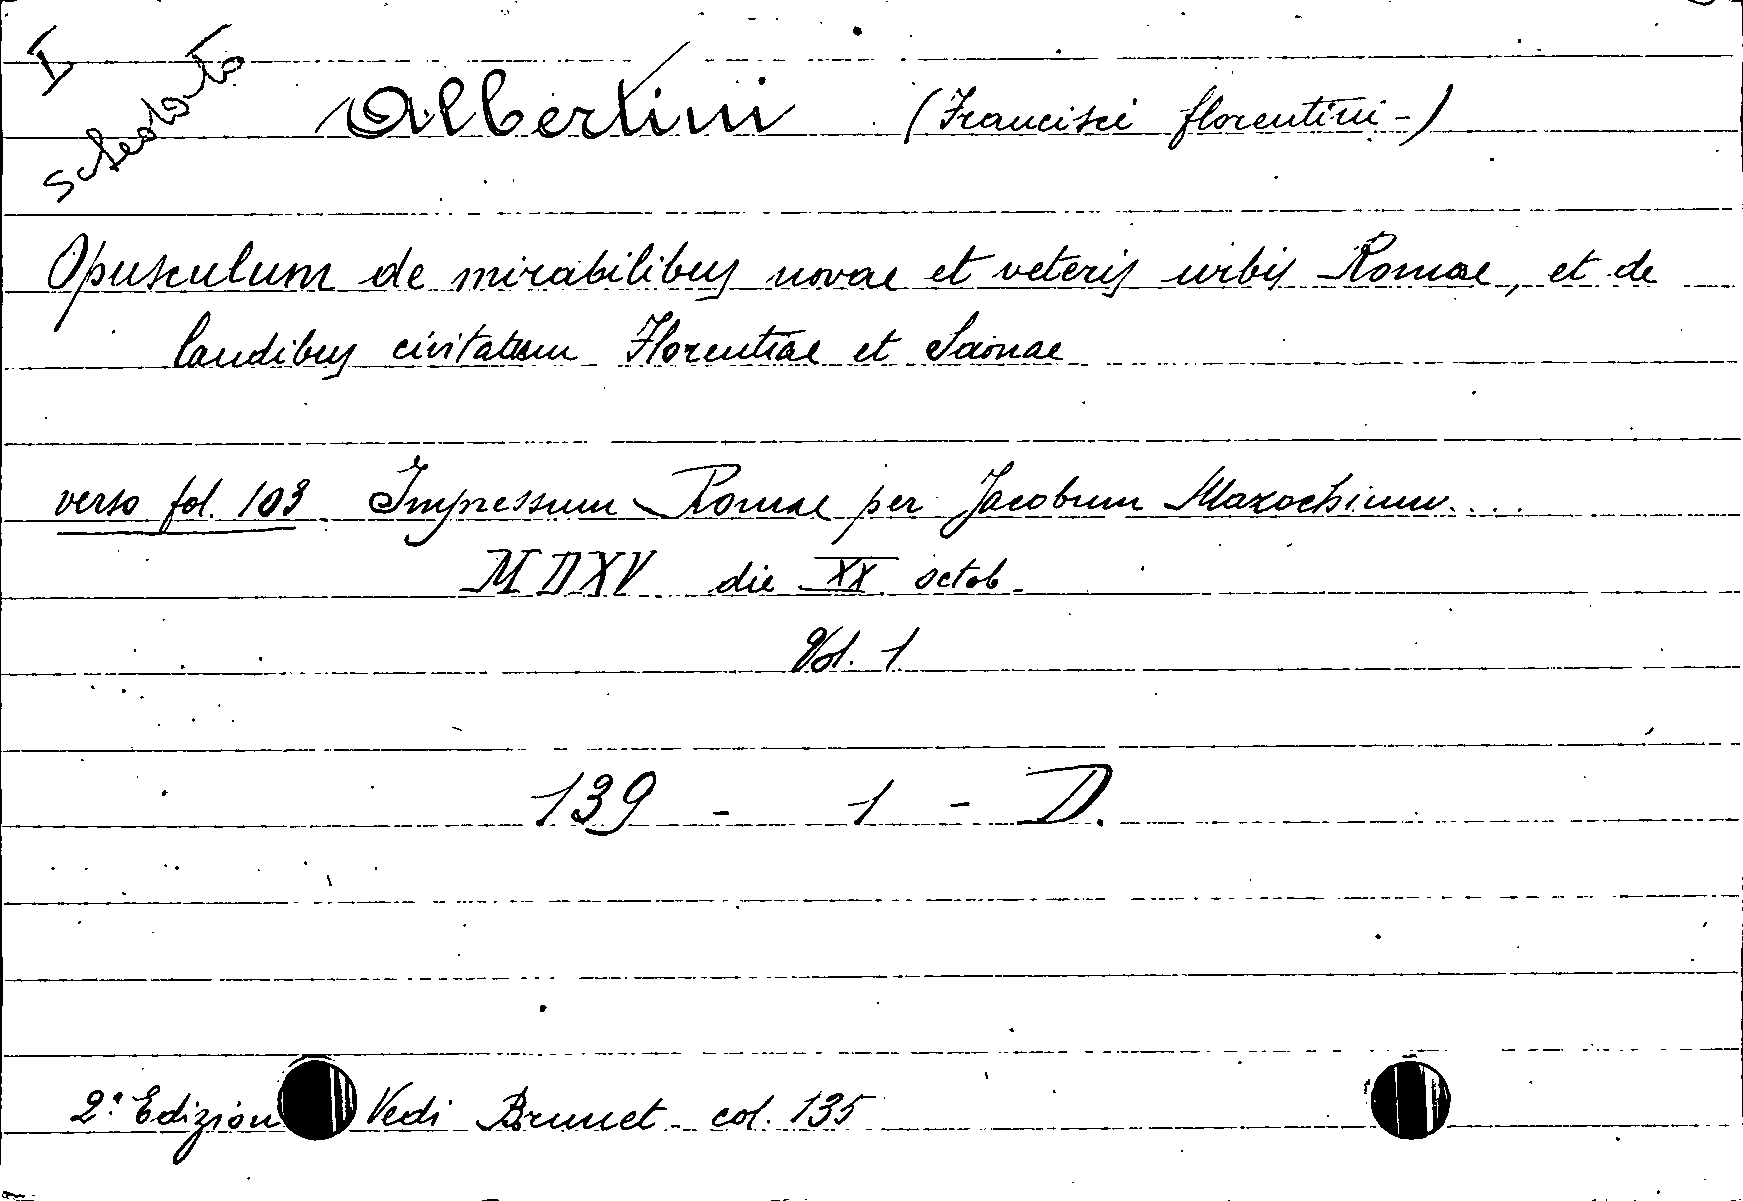 I
schedato
Albertini (Francisci florentini-)
Opusculum de mirabilibus novae et veteris urbis Romae, et de
laudibus civitatum Florentiae et Saonae
verso fol. 103 Impressum Romae per Jacobum Mazochium....
MDXV die XX octob.
Vol. 1
139 - 1 - D.
2ª Edizion Vedi Brunet col. 135